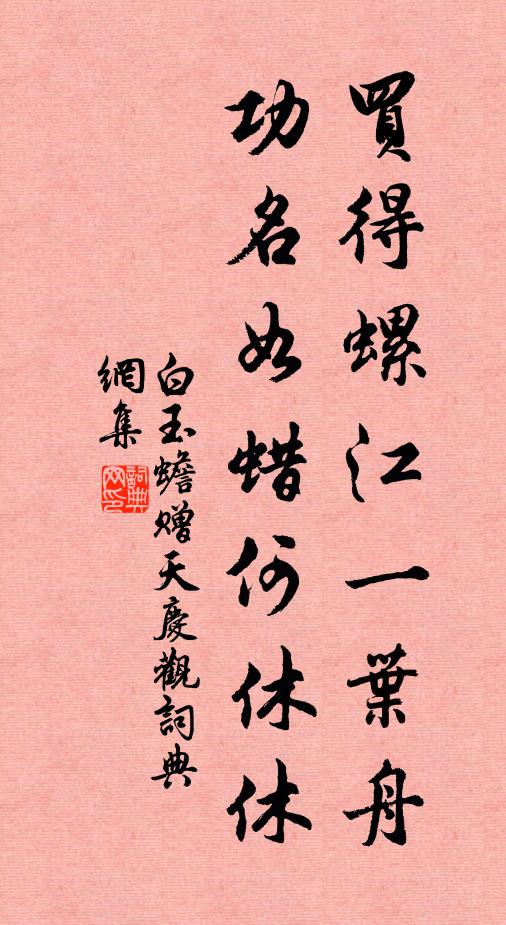 買得螺江一葉舟
功名如蜡何休休
白玉蟾贈天慶觀詞典
網集
詞典网印